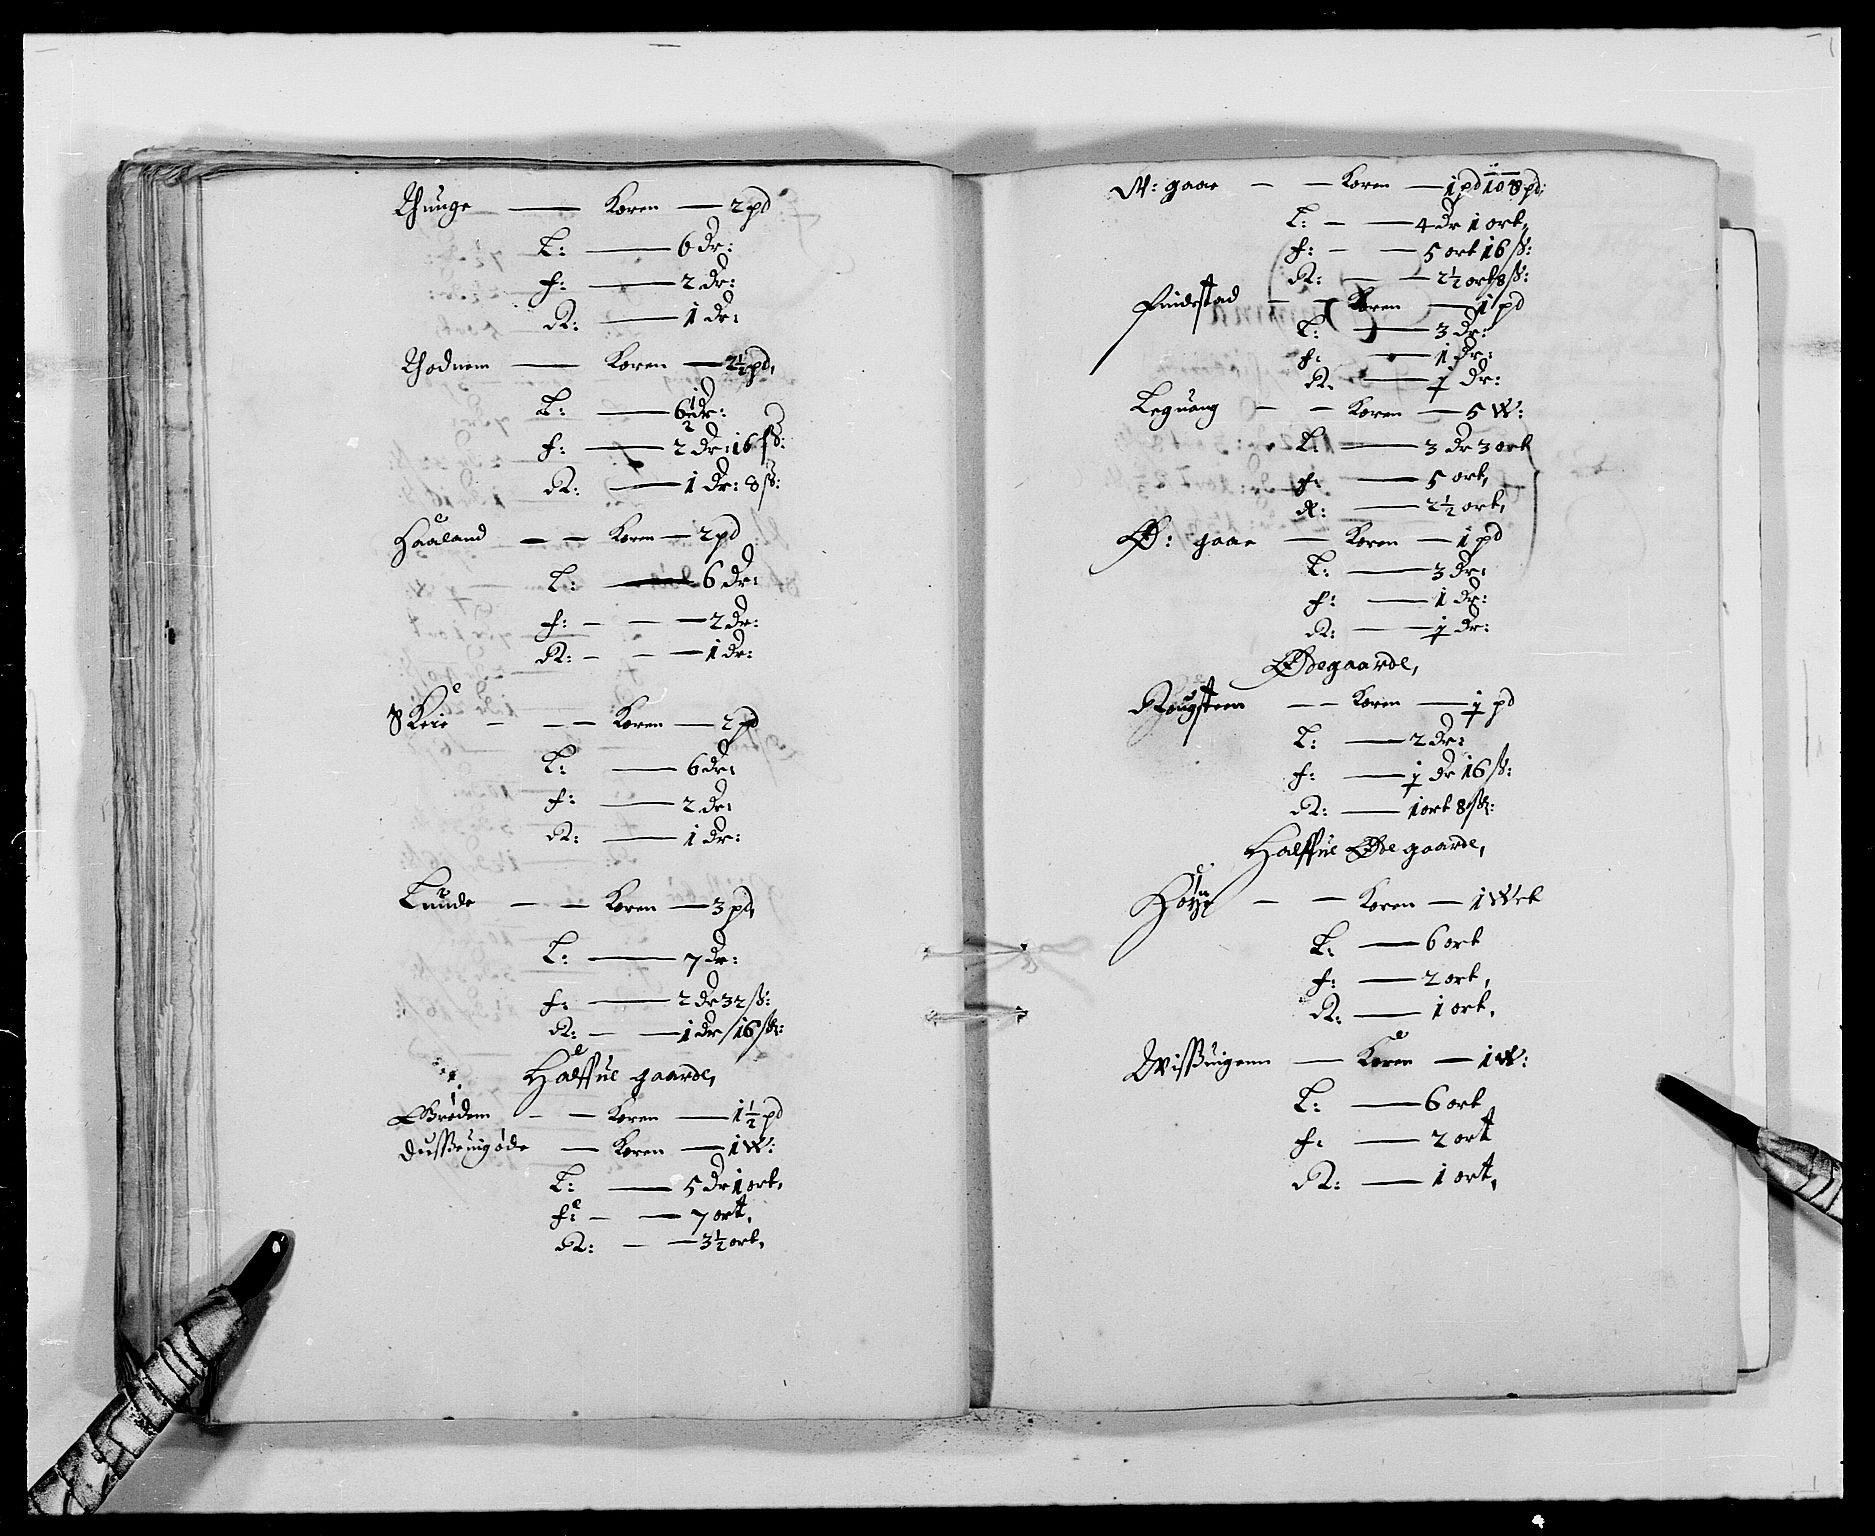 Thunge — Koren — 2 pd
L: — 6 dr:
f: — 2 dr:
R: — 1 dr:
Thodnem — Koren — 2½ pd,
L: — 6½ dr:
f: — 2 dr: 16 ß:
R: — 1 dr: 8 ß:
Haaland — — Koren — 2 pd
L: — 6 dr:
f: — — — 2 dr:
R: — — — 1 dr:
Skeie — — — Koren — 2 pd
L: — 6 dr:
f: — 2 dr:
R: — 1 dr:
Lunde — — Koren — 3 pd,
L: — 7 dr:
f: — 2 dr 32 ß:
R: — — 1 dr 16 ß:
Halffue gaarde,
Brødem — — Koren — 1½ pd
— Koren — 1 W:
L: — 5 dr 1 ort,
f: — — 7 ort,
R: — — 3½ ort,
W: gaae — — Koren — 1 pd 10 8 pd:
L: — — 4 dr 1 ort,
f: — — 5 ort 16 ß:
R: — — 2½ ort 8 ß:
Findestad — — Koren — 1 pd
L: — 3 dr:
f: — 1 dr:
R. — ½ dr:
Leguang — — Koren — 5 W:
L: — 3 dr 3 ort
f: — 5 ort,
R: — 2½ ort,
Ø: gaae — Koren — 1 pd
L: — 3 dr:
f: — 1 dr:
R: — ½ dr:
Ødegaarde,
Rougsteen — — Koren — ½ pd
L: — 2 dr:
f: — ½ dr 16 ß:
R: — 1 ort 8 ß:
Halffue Ødegaarde,
— — Koren — 1 Wet
L: — 6 ort
f: — 2 ort,
R: — 1 ort,
— Koren — 1 W:
L: — 6 ort
f: — 2 ort
R: — 1 ort,